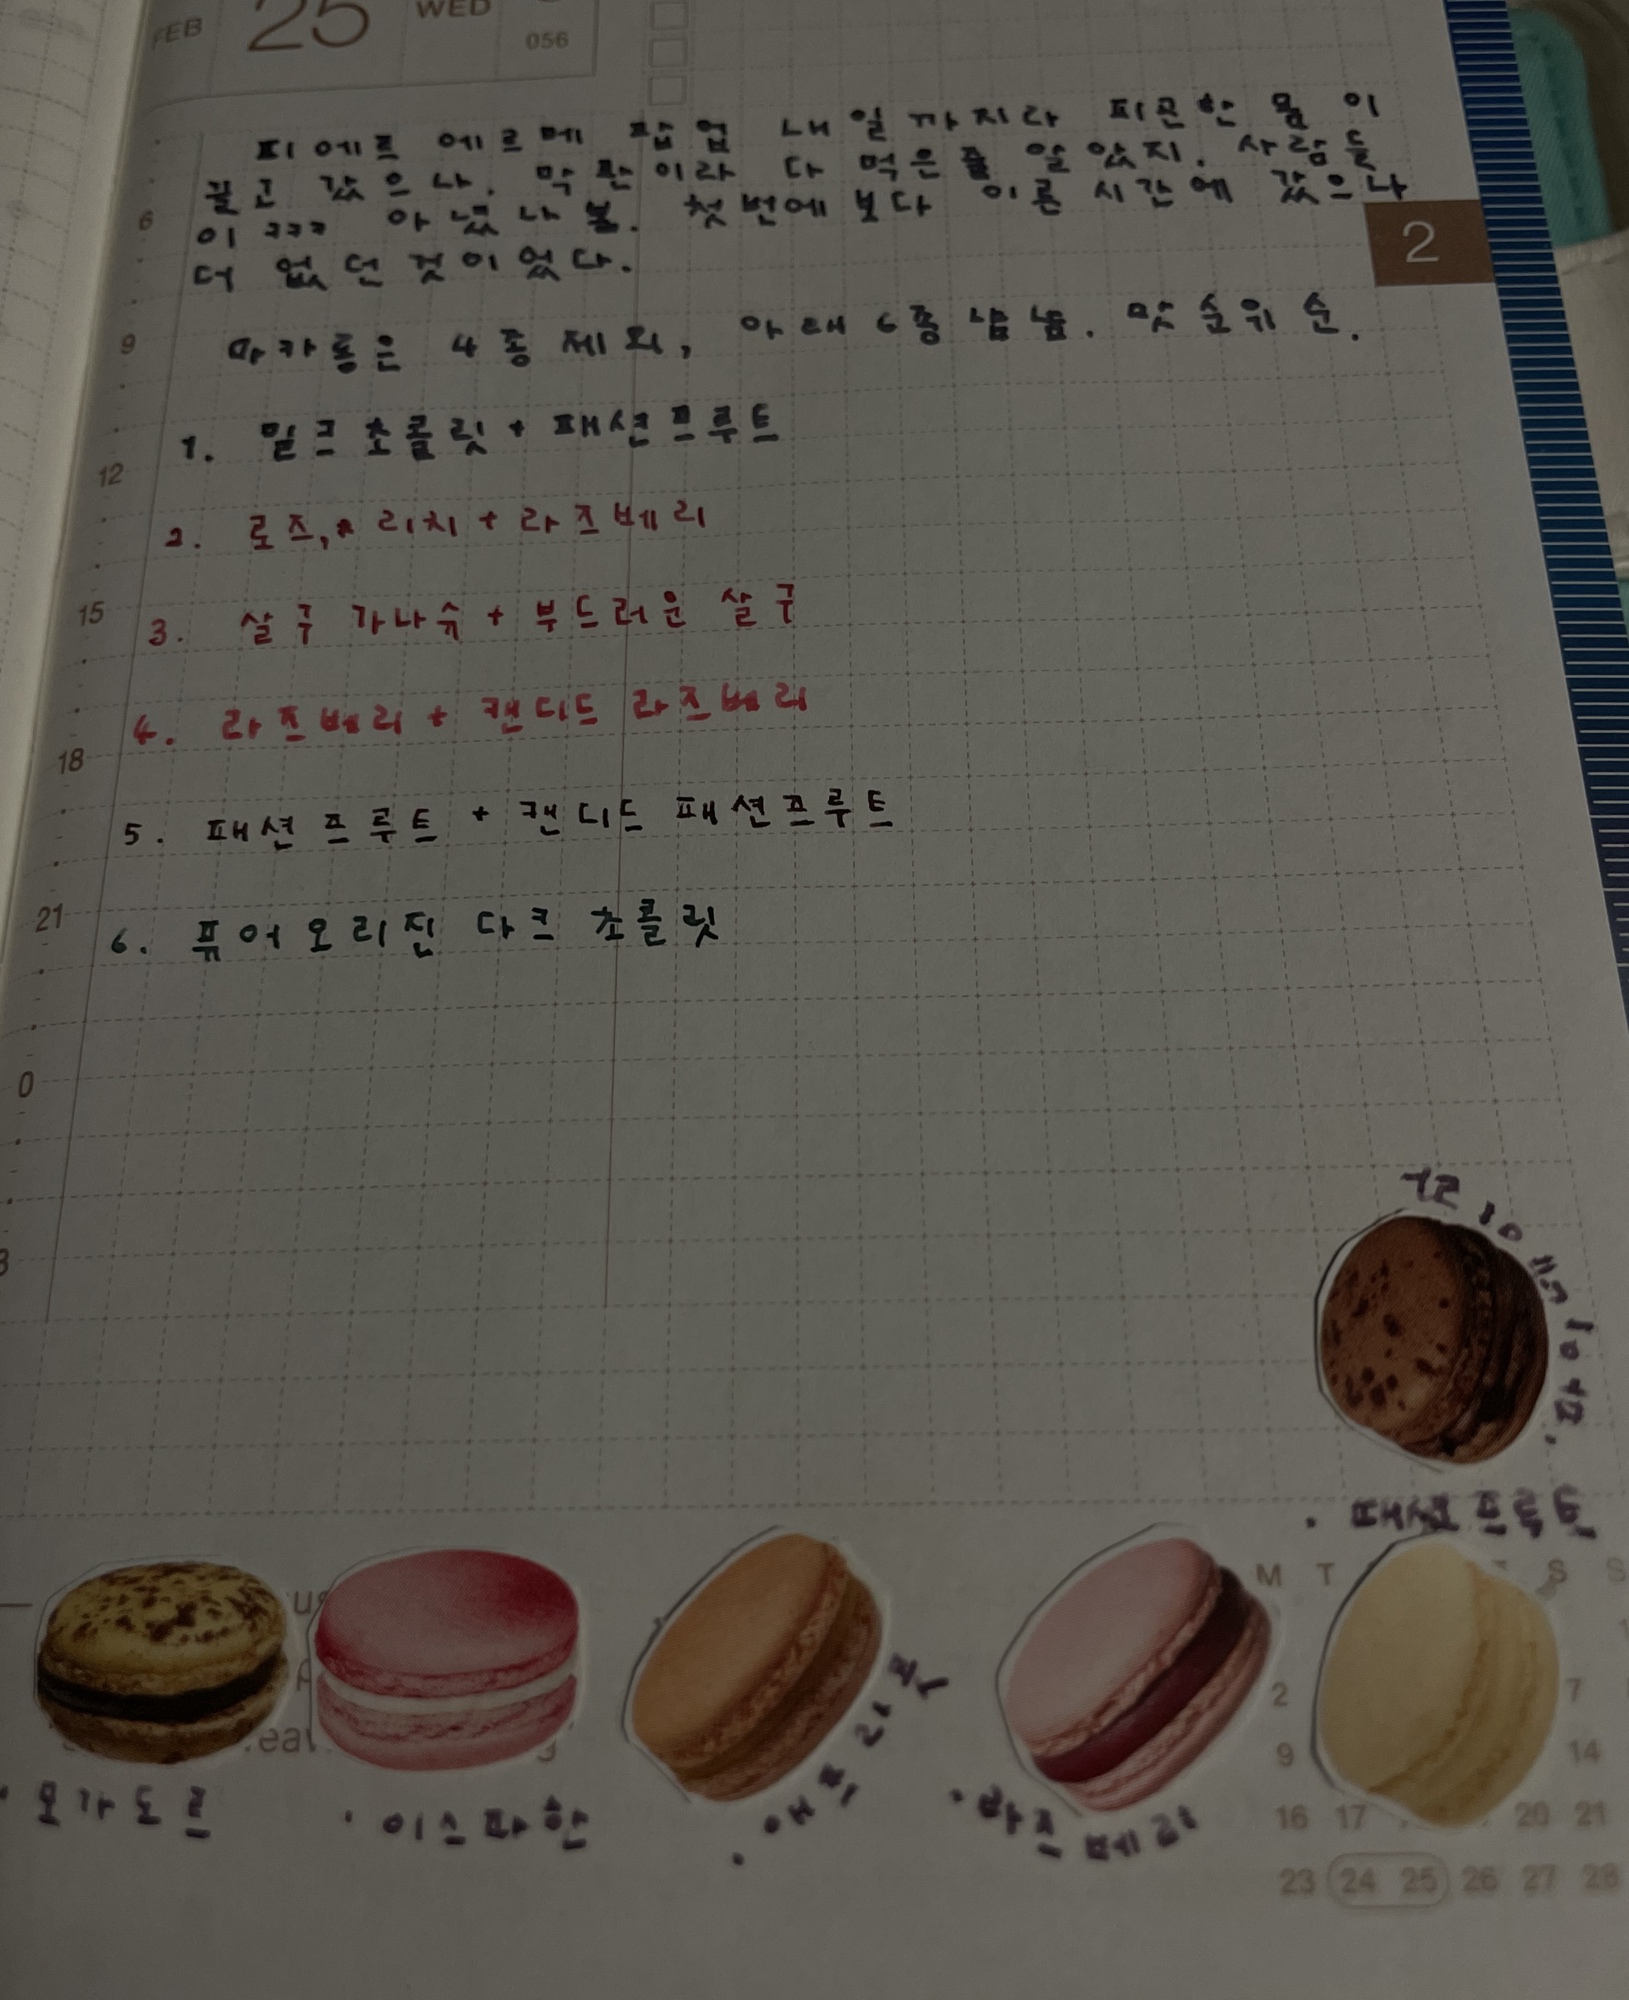 FEB 25 WED
056
피에르 에르메 팝업 내일까지라 피곤한 몸 이
끌고 갔으나. 막판이라 다 먹은 줄 알았지. 사람들
이 ㅋㅋㅋ 아녔나 봄. 첫번에 보다 이른 시간에 갔으나
더 없던 것이었다.
2
마카롱은 4종 제외, 아래 6종 냠냠. 맛 순위 순.
1. 밀크초콜릿 + 패션프루트
2. 로즈, 리치 + 라즈베리
3. 살구 가나슈 + 부드러운 살구
4. 라즈베리 + 캔디드 라즈베리
5. 패션프루트 + 캔디드 패션프루트
6. 퓨어 오리진 다크 초콜릿
6
9
12
15
18
21
0
3
패션프루트
모가도르
이스파한
라즈베리
M T S S
2 7
9 14
16 17 20 21
23 24 25 26 27 28